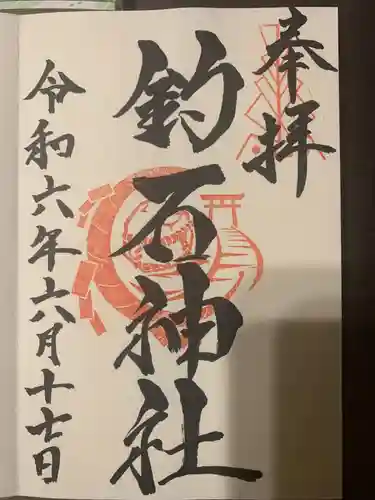 奉拝
釣石神社
令和六年六月十七日